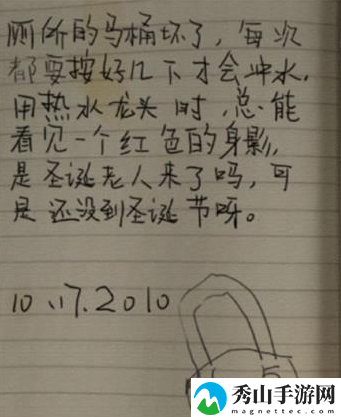 厕所的马桶坏了，每次
都要按好几下才会冲水。
用热水龙头时，总能
看见一个红色的身影，
是圣诞老人来了吗，可
是还没到圣诞节呀。
10.17.2010
秀山手游网
magnettec.com